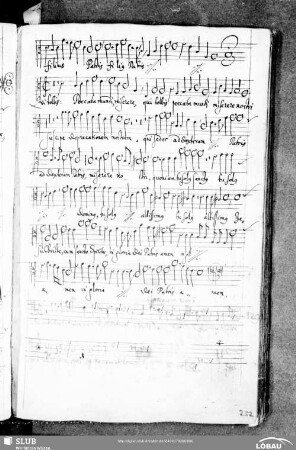 filius Patris fili Patris
qui tollis Peccata mundi, miserere, qui tollis peccata mundi miserere nostri
suscipe deprecationem nostram, qui sedes ad dexteram Patris
ad dexteram Patris, miserere no bis, quoniam tu solus sanctus tu solus
Dominus, tu solus altissimus tu solus altissimus Je
su Christe, cum sancto Spiritu, in gloria Dei Patris amen
a men in gloria Dei Patris a men.
252
SLUB
Wir führen Wissen.
LÖBAU